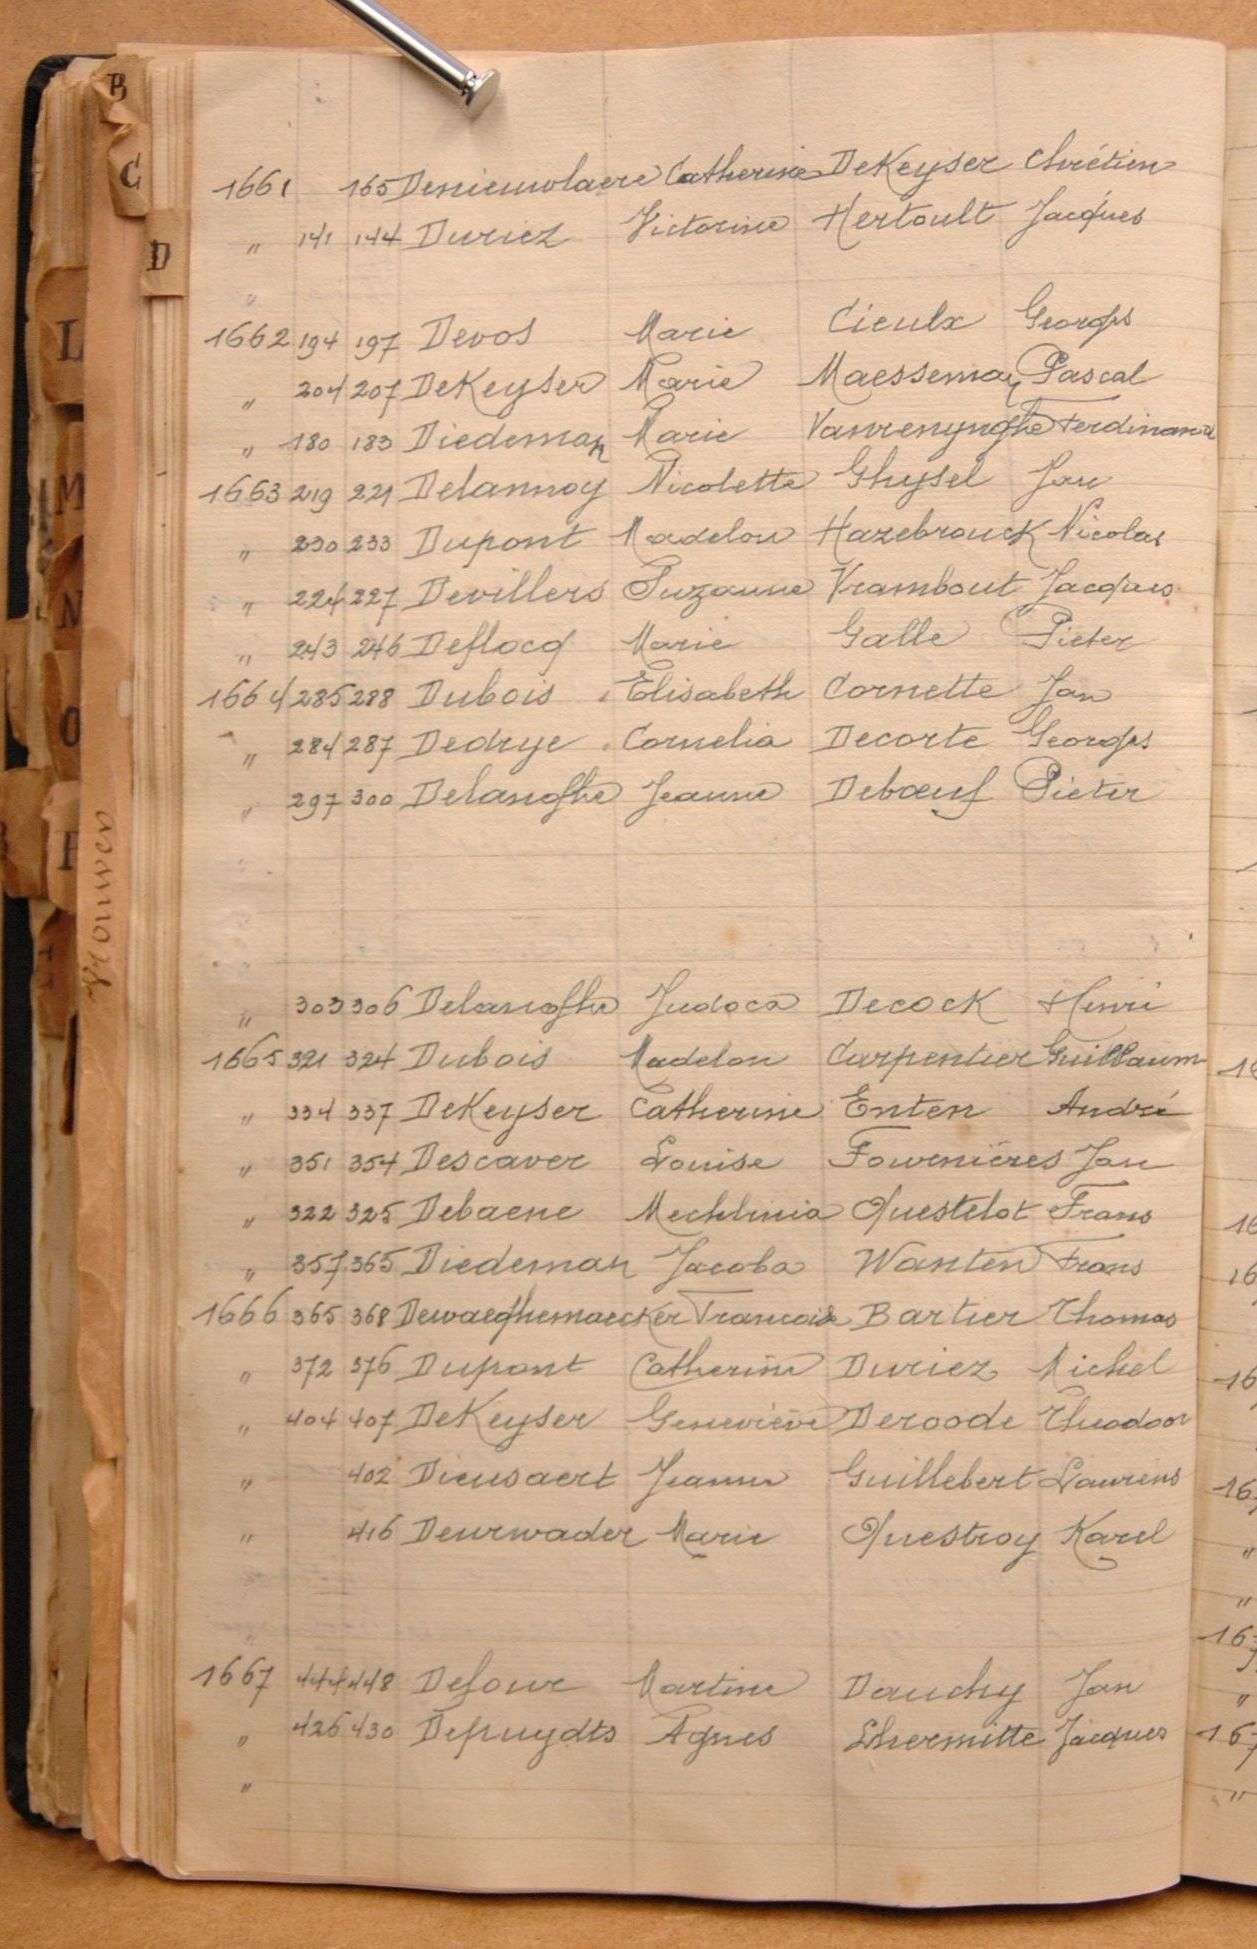 B
C
D
L
M
N
O
P
Vrouwen
1661 165 Denieuwlaere Catherine DeKeyser Chrétien
" 141 144 Duriez Victorine Hertoult Jacques
"
1662 194 197 Devos Marie Cieulx Georges
" 204 207 DeKeyser Marie Maesseman Pascal
" 180 183 Diedeman Marie Vanrenynghe Ferdinand
1663 219 221 Delannoy Nicolette Ghysel Jan
" 230 233 Dupont Madelon Hazebrouck Nicolas
" 224 227 Devillers Suzanne Vrambout Jacques
" 243 246 Deflocq Marie Galle Pieter
1664 285 288 Dubois Elisabeth Cornette Jan
" 284 287 Dedrye Cornelia Decorte Georges
" 297 300 Delanghe Jeanne Debœuf Pieter
" 303 306 Delanghe Judoca Decock Henri
1665 321 324 Dubois Madelon Carpentier Guillaum
" 334 337 DeKeyser Catherine Enten André
" 351 354 Descaver Louise Fournières Jan
" 322 325 Debaene Mechlinia Questelot Frans
" 357 365 Diedeman Jacoba Wanten Frans
1666 365 368 Dewaeghemaecker Francoise Bartier Thomas
" 372 376 Dupont Catherine Duriez Michel
" 404 407 DeKeyser Geneviève Deroode Theodoor
" 402 Dieusaert Jeanne Guillebert Laurens
" 416 Deurwader Marie Questroy Karel
"
1667 444 448 Defour Martine Dauchy Jan
" 426 430 Depuydts Agnes Lhermitte Jacques
"